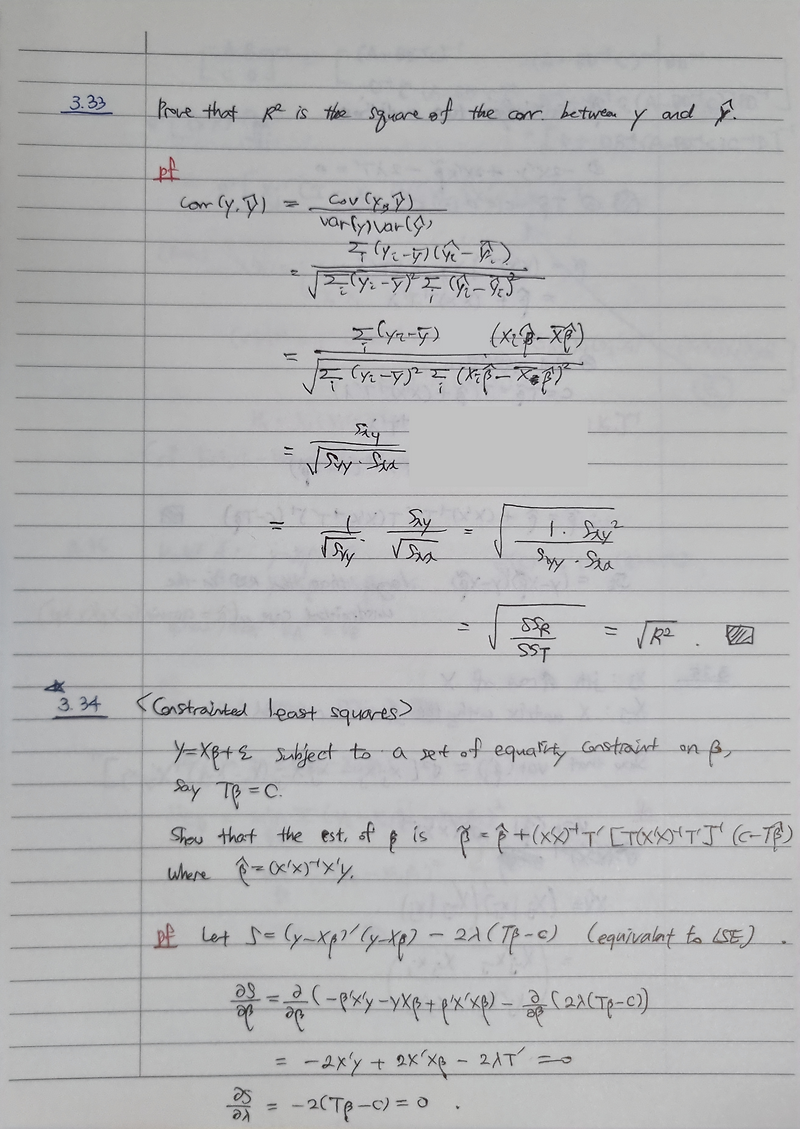 3.33 Prove that R² is the square of the corr. between y and ŷ.
pf
Corr(y, ŷ) = cov(y, ŷ) / var(y)var(ŷ)
= Σᵢ(yᵢ-ȳ)(ŷᵢ-ŷ̄ᵢ) / √(Σᵢ(yᵢ-ȳ)² Σᵢ(ŷᵢ-ŷ̄ᵢ)²)
= Σᵢ(yᵢ-ȳ) (xᵢβ̂-x̄β̂) / √(Σᵢ(yᵢ-ȳ)² Σᵢ(xᵢβ̂-x̄β̂)²)
= Sxy / √(Syy · Sxx)
= 1/√Syy · Sxy/√Sxx = √(1 · Sxy² / Syy · Sxx)
= √(SSR / SST) = √R² .
3.34 <Constrainted least squares>
y=Xβ+ε subject to a set of equality constraint on β,
say Tβ=C.
Show that the est. of β is β̃ = β̂ + (X'X)⁻¹T'[T(X'X)⁻¹T']⁻¹(C-Tβ̂)
where β̂=(X'X)⁻¹X'y.
pf Let S=(y-Xβ)'(y-Xβ) - 2λ(Tβ-C) (equivalent to LSE) .
∂S/∂β = ∂/∂β (-β'X'y-yXβ+β'X'Xβ) - ∂/∂β (2λ(Tβ-C))
= -2X'y + 2X'Xβ - 2λT' = 0
∂S/∂λ = -2(Tβ-C) = 0 .